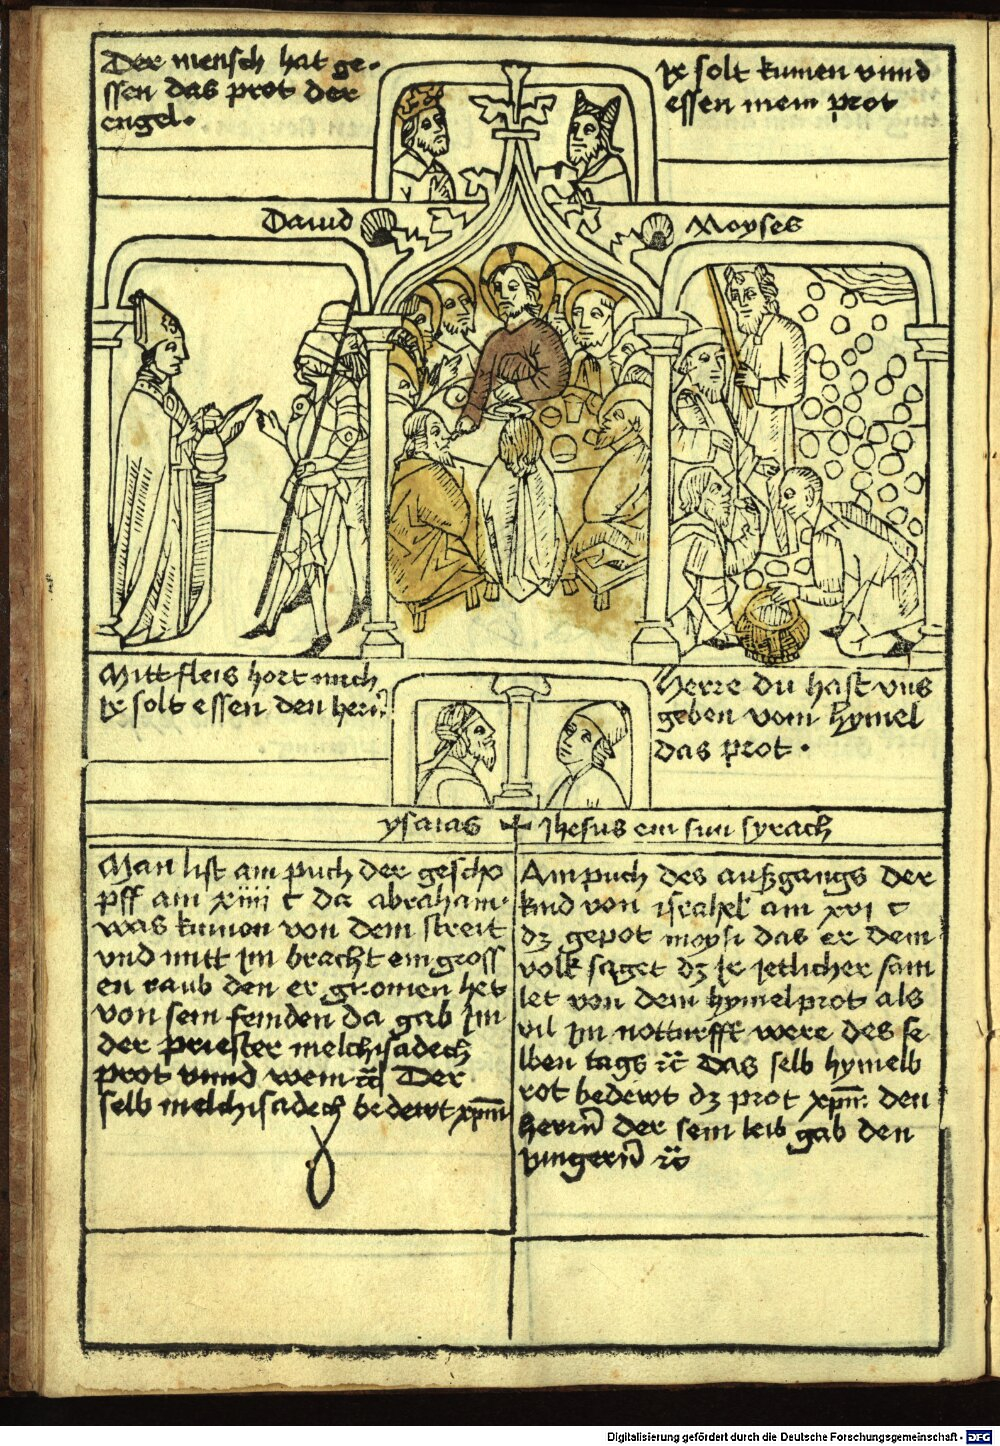 Der mensch hat ge-
ssen das prot der
engel.
Ir solt kumen vnnd
essen mein prot
Dauid
Moyses
Mitt fleis hort mich
Ir solt essen den herrn
Herre du hast vns
geben vom hymel
das prot.
ysaias
Jhesus ein sun syrach
Man list am puch der gescho
pff am xiiii c da abraham
was kumen von dem streit
vnd mitt Im bracht ein gross
en raub den er gnomen het
von sein feinden da gab Im
der priester melchisadech
prot vnnd wein ⁊c Der
selb melchisadech bedewt xpm
Am puch des außgangs der
kind von israhel am xvi c
dz gepot moysi das er dem
volk saget dz Ir Jetlicher sam
let von dem hymelprot als
vil Im notturfft were des se
lben tags ⁊c Das selb hymelb
rot bedewt dz prot xpm den
herrn der sein leib gab den
Jungern ⁊c
Digitalisierung gefördert durch die Deutsche Forschungsgemeinschaft - DFG